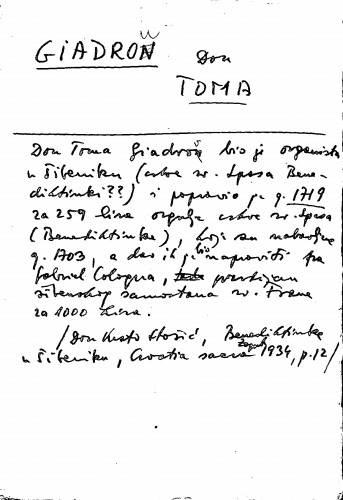 GIADROŇ Don
TOMA
Don Toma Giadroň bio je organista
u Šibeniku (crkve sv. Spasa Bene-
diktinki??) i popravio je g. 1719
za 259 lira orgulje crkve sv. Spasa
(Benediktinke), koje su nabavljene
g. 1703, a dao ih je bio napraviti fra
Gabriel Cologna, gvardijan
šibenskog samostana sv. Frane
za 1000 lira.
/Don Krsto Stošić, Benediktinke
u Šibeniku, Croatia sacra Zagreb 1934, p.12/